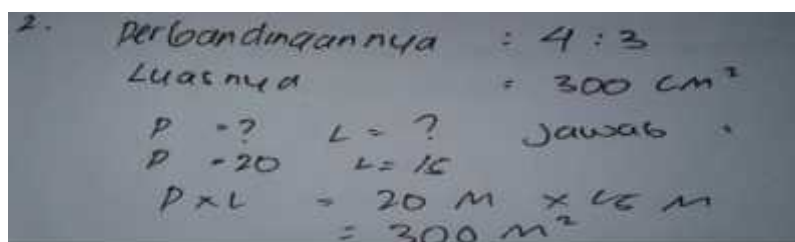 2. Perbandingannya : 4 : 3
Luasnya = 300 cm²
P = ? L = ? Jawab .
P = 20 L = 15
P x L = 20 M x 15 M
= 300 m²